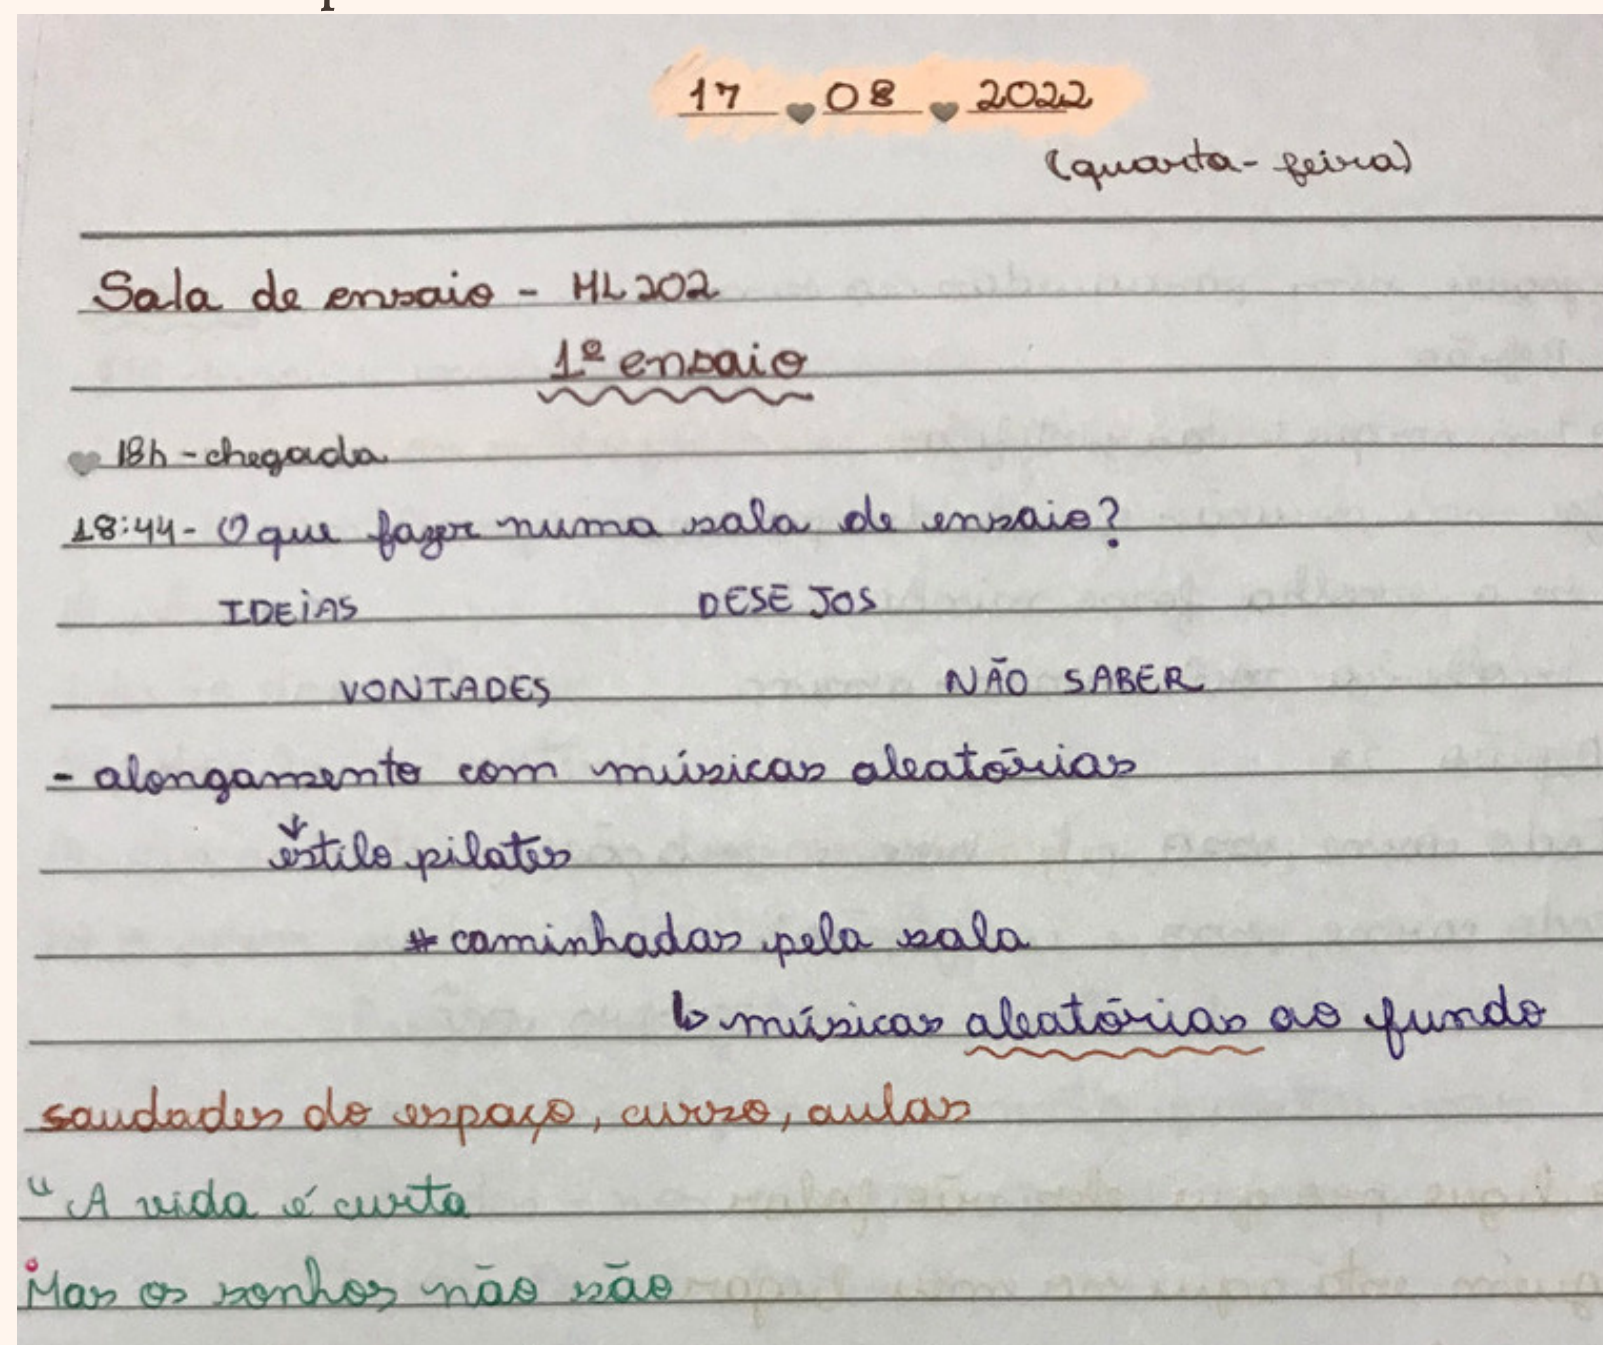 17 08 2022
(quarta-feira)
Sala de ensaio - HL202
1º ensaio
18h - chegada
18:44 - O que fazer numa sala de ensaio?
IDEIAS DESEJOS
VONTADES NÃO SABER
- alongamento com músicas aleatórias
estilo pilates
* caminhadas pela sala
↳ músicas aleatórias ao fundo
saudades do espaço, curso, aulas
"A vida é curta
Mas os sonhos não são